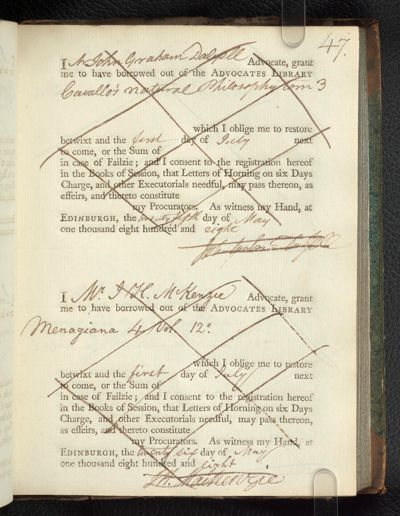 47.
I Mr John Graham Dalyell Advocate, grant
me to have borrowed out of the ADVOCATES LIBRARY
Cavallo's natural Philosophy tom 3
which I oblige me to restore
betwixt and the first day of July next
to come, or the Sum of
in case of Failzie; and I consent to the registration hereof
in the Books of Session, that Letters of Horning on six Days
Charge, and other Executorials needful, may pass thereon, as
effeirs, and thereto constitute
my Procurators. As witness my Hand, at
EDINBURGH, the twenty fifth day of May
one thousand eight hundred and eight
I Mr. J H. McKenzie Advocate, grant
me to have borrowed out of the ADVOCATES LIBRARY
Menagiana 4 Vol. 12o.
which I oblige me to restore
betwixt and the first day of July next
to come, or the Sum of
in case of Failzie; and I consent to the registration hereof
in the Books of Session, that Letters of Horning on six Days
Charge, and other Executorials needful, may pass thereon,
as effeirs, and thereto constitute
my Procurators. As witness my Hand, at
EDINBURGH, the twenty six day of May
one thousand eight hundred and eight